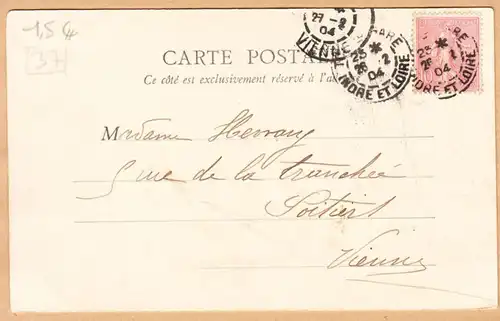 1,5 €
37
27 - 2
04
VIENNE
GARE
25 *
26 - 2
04
INDRE ET LOIRE
GARE
25
2
04
INDRE ET LOIRE
CARTE POSTA
Ce côté est exclusivement réservé à l'a
Madame
5 rue de la tranchée
Poitiers
Vienne